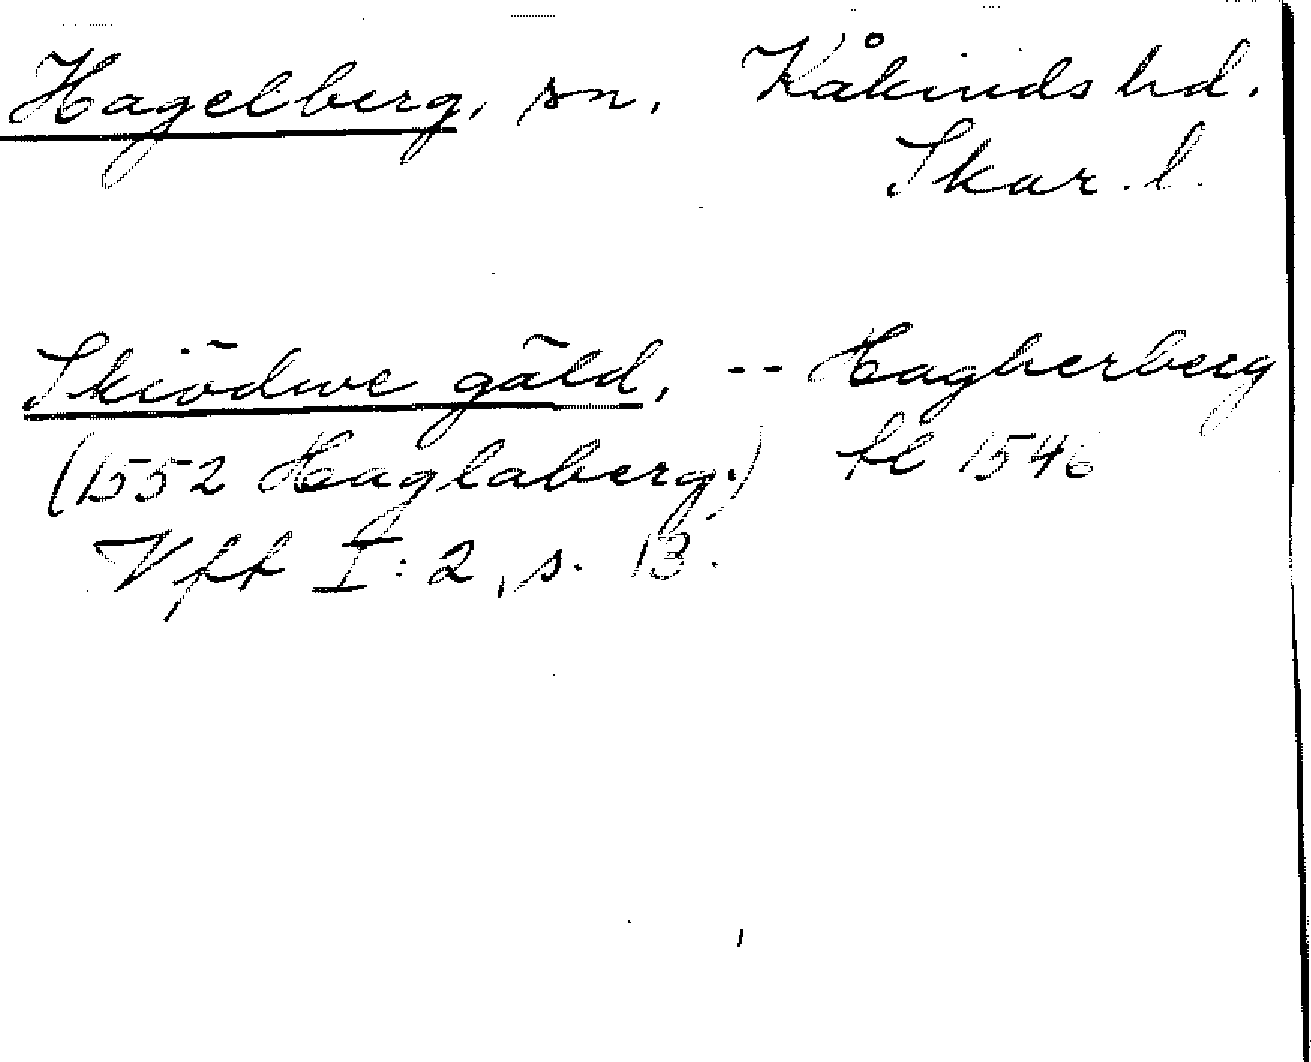 Hagelberg, sn. Kåkinds hd.
Skar. l.
Skiödwe gäld, -- Hagherberg
(1552 Haglaberg.) fl 1546
Vff I: 2, s. 13.